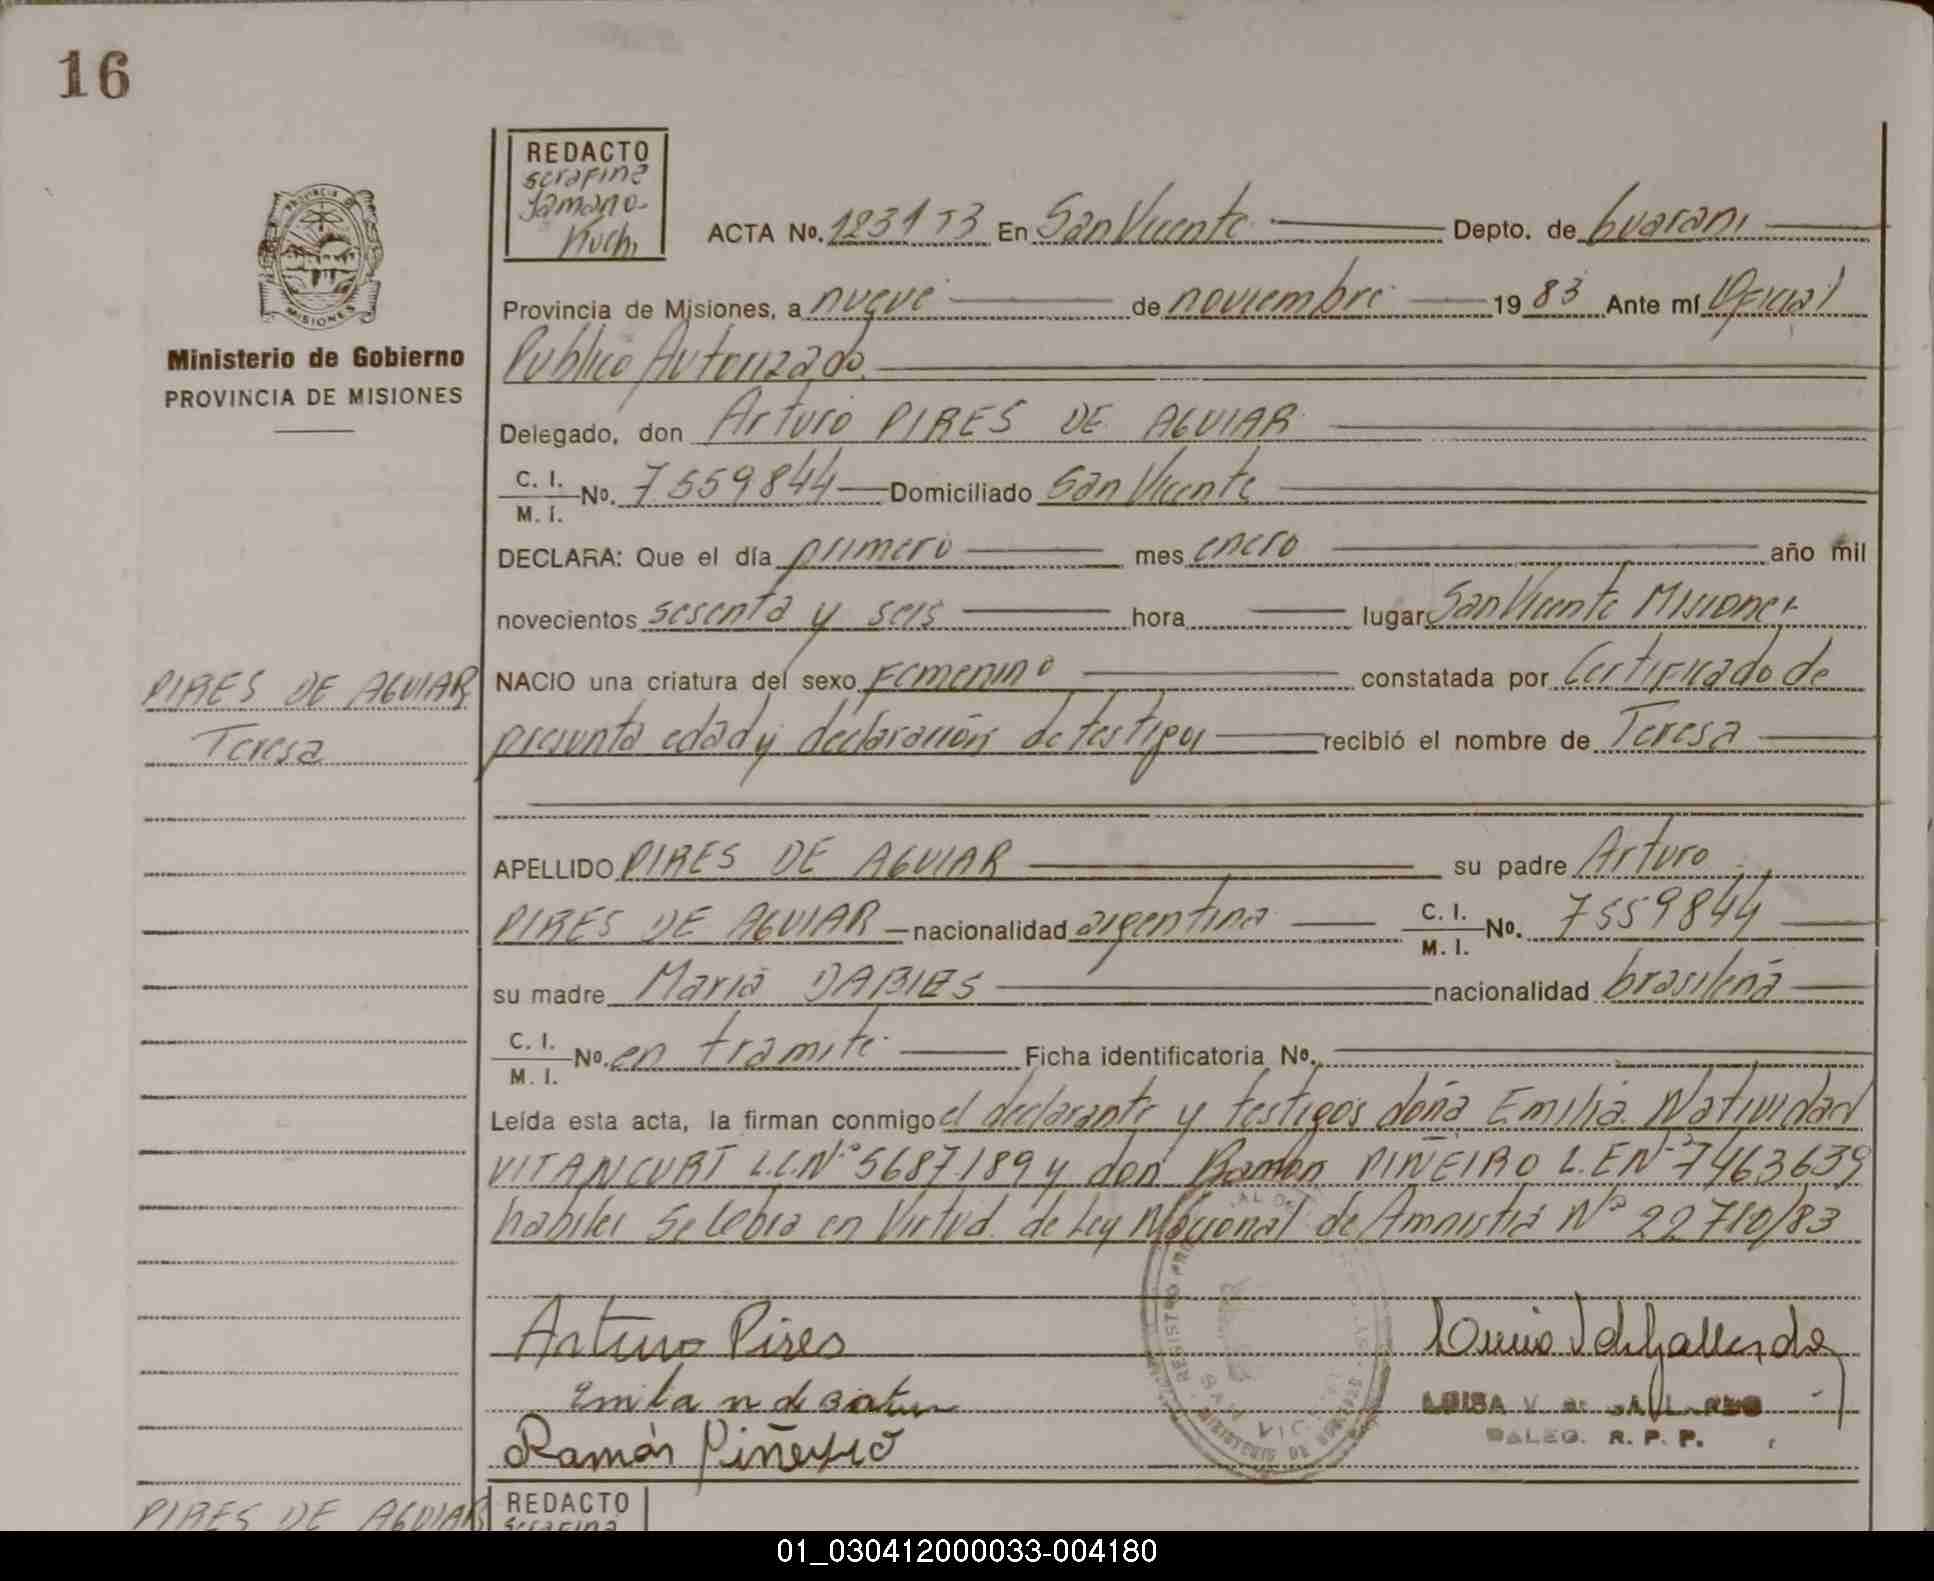 16
REDACTO
serafina
Tamano
Kuch
PROVINCIA DE
MISIONES
Ministerio de Gobierno
PROVINCIA DE MISIONES
ACTA No. En San Vicente Depto. de Guarani
Provincia de Misiones, a nueve de noviembre 19 83 Ante mí Oficial
Publico Autorizado
Delegado, don Arturo PIRES DE AGUIAR
C. I.
M. I. No. 7559844 Domiciliado San Vicente
DECLARA: Que el día primero mes enero año mil
novecientos sesenta y seis hora lugar San Vicente Misiones
PIRES DE AGUIAR
Teresa
NACIO una criatura del sexo Femenino constatada por Certificado de
presunta edad y declaración de testigos recibió el nombre de Teresa
APELLIDO PIRES DE AGUIAR su padre Arturo
PIRES DE AGUIAR nacionalidad argentina C. I. M. I. No. 7559844
su madre Maria DABIES nacionalidad brasileña
C. I.
M. I. No. en tramite Ficha identificatoria No.
Leída esta acta, la firman conmigo el declarante y testigos doña Emilia Natividad
VITANCURT L.C.Nº 5687189 y don Ramon PIÑEIRO L.E Nº 7463639
habiles Se labra en Virtud de Ley Nacional de Amnistia Nº 22710/83
Arturo Pires
Emilia n de
Ramón Piñeyro
REGISTRO
SAN VIC
MINISTERIO DE GOBIERNO
LUISA V. de GALLARDO
DALEG. R. P. P.
PIRES DE AGUIAR
REDACTO
serafina
01_030412000033-004180